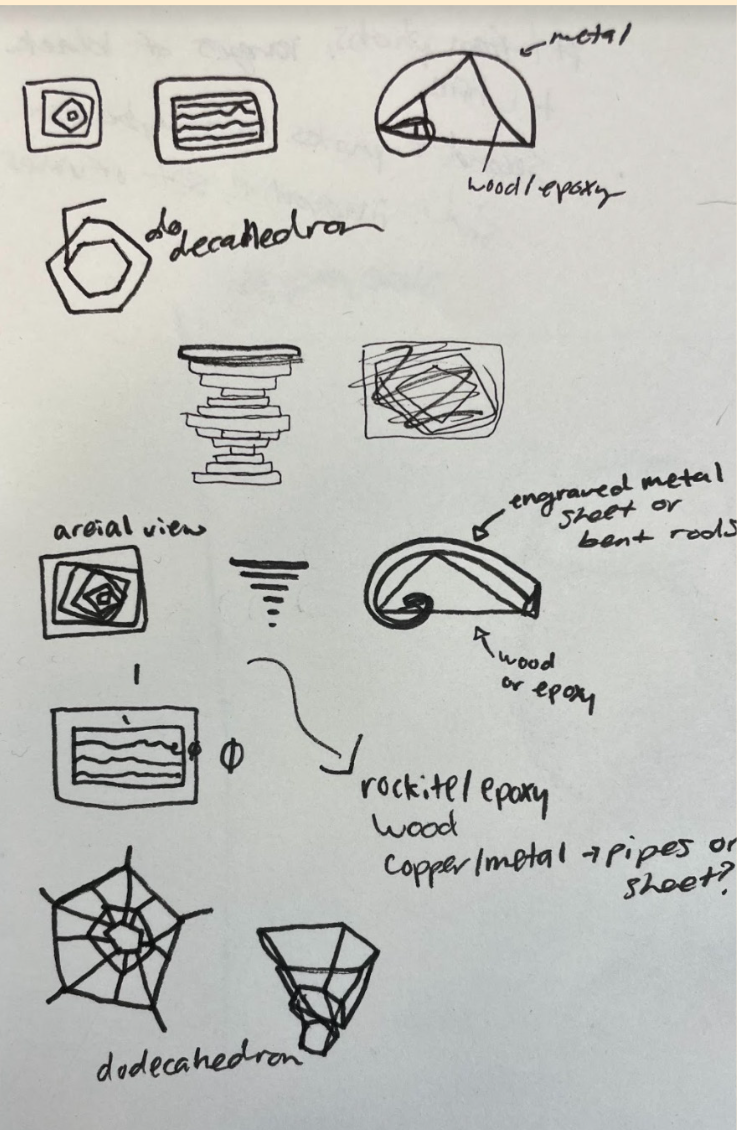 metal
wood/epoxy
dodecahedron
engraved metal
sheet or
bent rods
areial view
wood
or epoxy
1
φ
rockite/epoxy
wood
copper/metal → pipes or
sheet?
dodecahedron